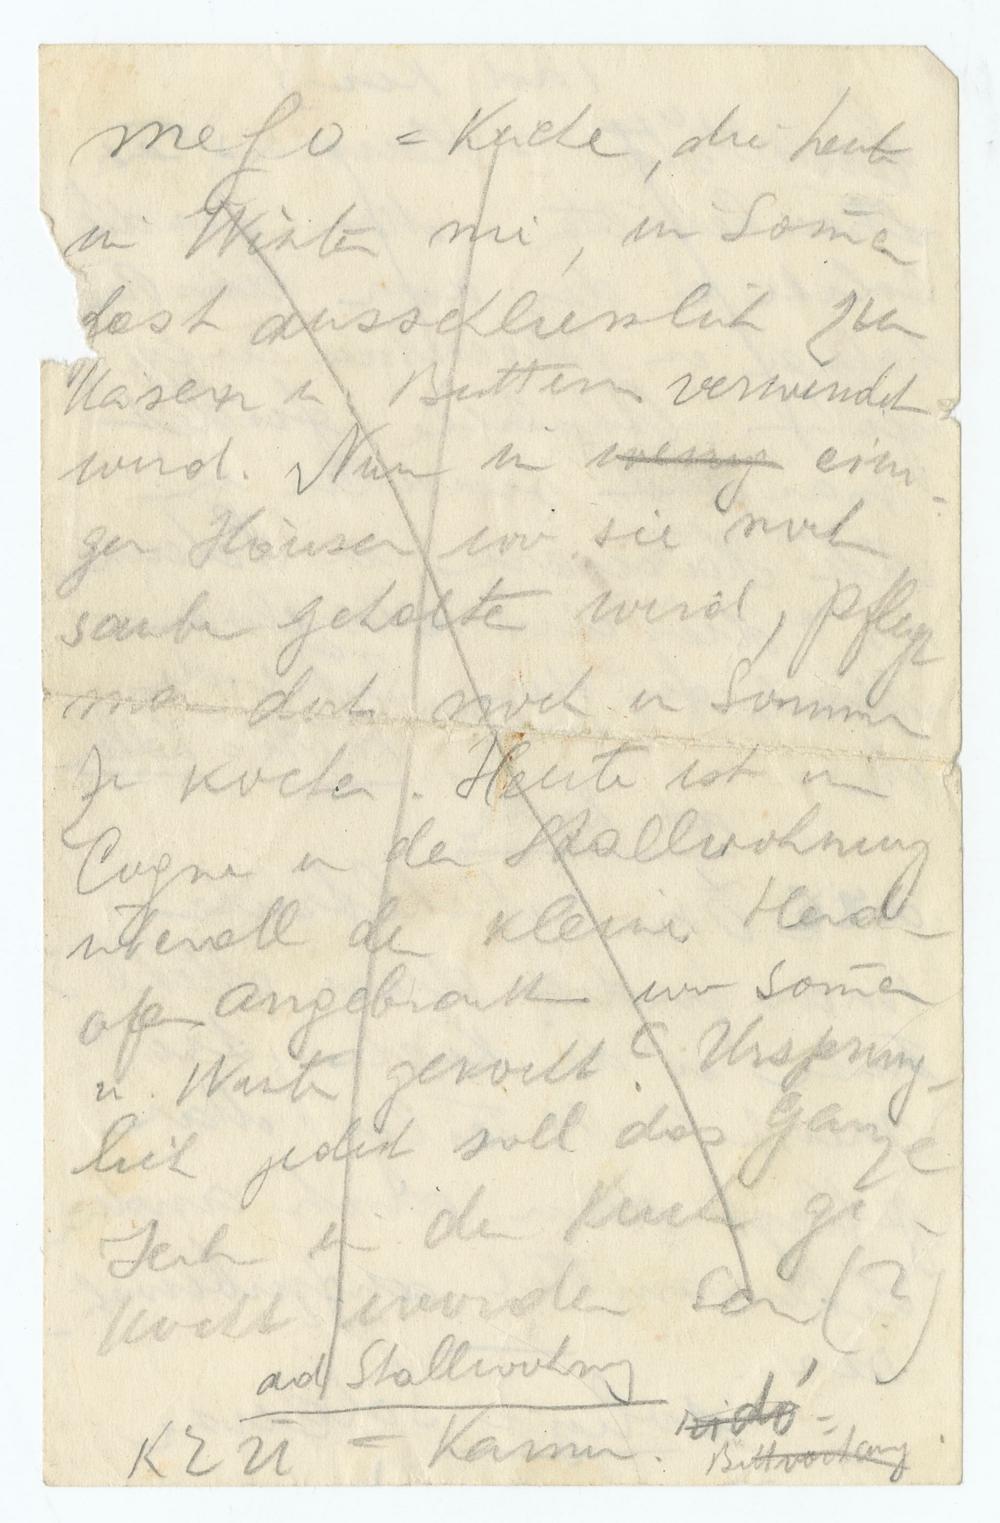 mefo = Küche, die heute
im Winter nie, im Som̄er
fast ausschliesslich zum
Käsern u. Buttern verwendet
wird. Nur in wenig eini-
gen Häusern wo sie noch
sauber gehalten wird, pflegt
man dort noch im Sommer
zu kochen. Heute ist in
Cogne in der Stallwohnung
überall der kleine Herd
angebracht wo Som̄er
u. Winter gekocht. Ursprüng-
lich jedoch soll das Ganze
Jahr in der Küche ge-
kocht worden sein (?)
ad Stallwohnung
= Kamin.